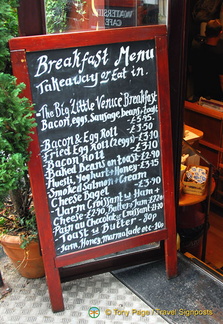 WATERSIDE
CAFE
Breakfast Menu
Takeaway or Eat in.
-The Big Little Venice Breakfast
Bacon, eggs, Sausage, beans, Toast
-£5.45
-Bacon & Egg Roll -£3.50
Fried Egg Roll (2eggs) -£3.10
Bacon Roll -£3.10
Baked Beans on Toast -£2.90
Muesli, Yoghurt + Honey -£3.15
Smoked Salmon + Cream
Cheese Bagel -£3.90
-Warm Croissant & Ham +
Cheese -£2.90, Butter+Jam £2.20
-Pain au Chocolat or Croissant £1.50
-Toast & Butter - 80p
-Jam, Honey, marmalade etc -
Photo © Tony Page/Travel Signposts